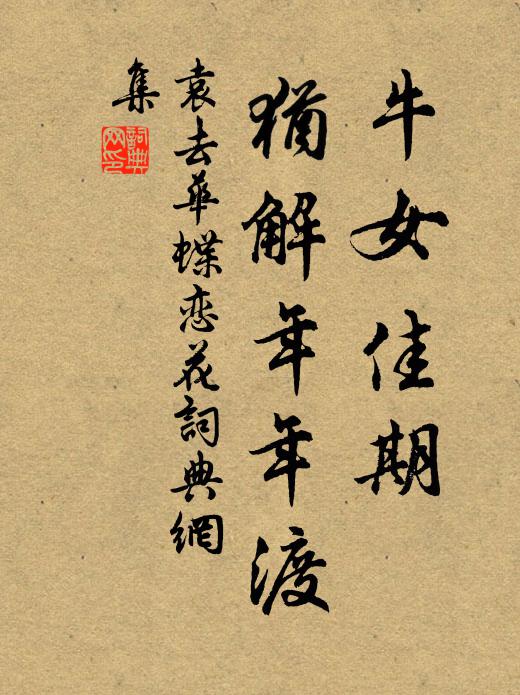 牛女佳期
猶解年年渡
袁去華蝶恋花詞典網
集
詞典
网印